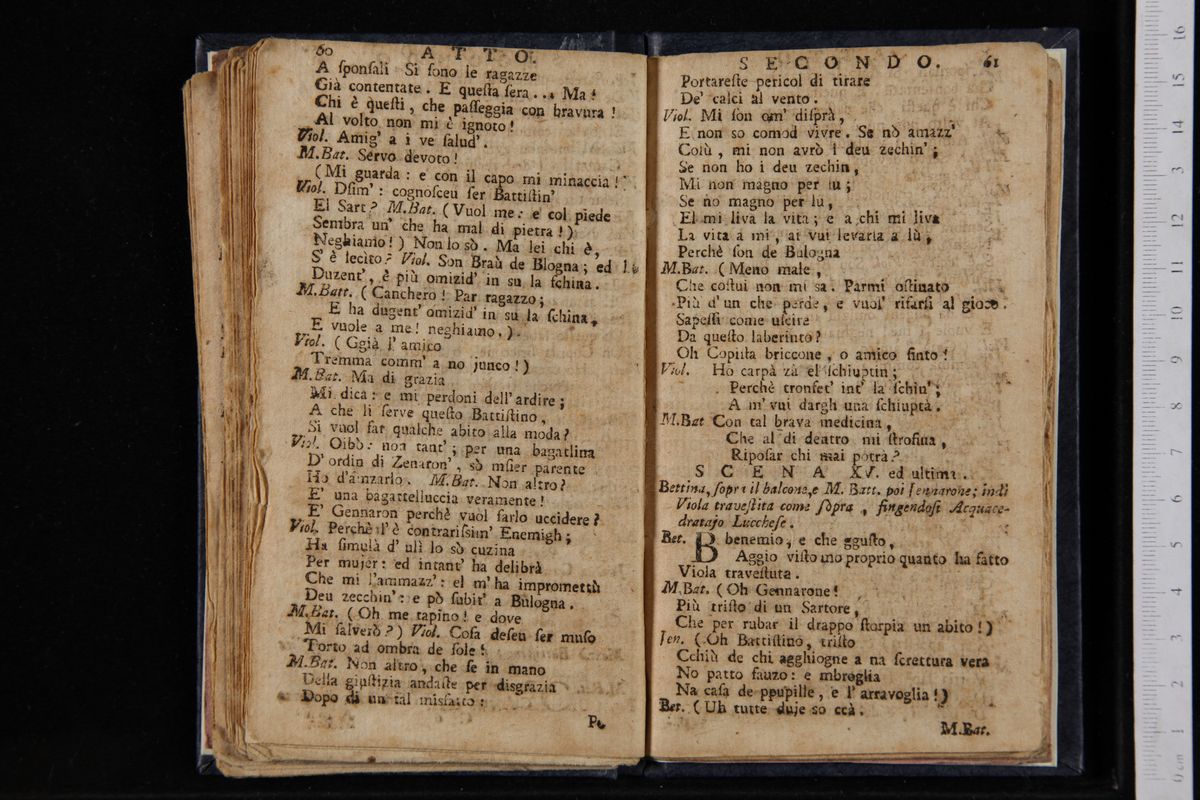 60 ATTO.
A sponsali Si sono le ragazze
Già contentate. E questa sera... Ma!
Chi è questi, che passeggia con bravura!
Al volto non mi è ignoto!
Viol. Amig' a i ve salud'.
M.Bat. Servo devoto!
(Mi guarda: e con il capo mi minaccia!)
Viol. Dsim': cognosceu ser Battistin'
El Sart? M.Bat. (Vuol me: e col piede
Sembra un' che ha mal di pietra!)
Neghiamo!) Non lo sò. Ma lei chi è,
S' è lecito? Viol. Son Braù de Blogna; ed
Duzent', è più omizid' in su la schina.
M.Batt. (Canchero! Par ragazzo;
E ha dugent' omizid' in su la schina,
E vuole a me! neghiamo.)
Viol. (Ggià l' amico
Tremma comm' a no junco!)
M.Bat. Ma di grazia
Mi dica: e mi perdoni dell'ardire;
A che li serve questo Battistino,
Si vuol far qualche abito alla moda?
Viol. Oibò: non tant'; per una bagatlina
D' ordin di Zenaron', sò msier parente
Ho d'anzarlo. M.Bat. Non altro?
E' una bagattelluccia veramente!
E' Gennaron perchè vuol farlo uccidere?
Viol. Perchè il'è contrarissim' Enemigh;
Ha simulà d' ulì lo sò cuzina
Per mujer: ed intant' ha delibrà
Che mi l'ammazz': el m' ha impromettù
Deu zecchin': e pò subit' a Bulogna.
M.Bat. (Oh me tapino! e dove
Mi salverò?) Viol. Cosa deseu ser muso
Torto ad ombra de sole!
M.Bat. Non altro, che se in mano
Della giustizia andaste per disgrazia
Dopo di un tal misfatto:
SECONDO. 61
Portareste pericol di tirare
De' calci al vento.
Viol. Mi son om' disprà,
E non so comod vivre. Se nò amazz'
Colù, mi non avrò i deu zechin';
Se non ho i deu zechin,
Mi non magno per lu;
Se no magno per lu,
El mi liva la vita; e a chi mi liva
La vita a mi, ai vui levarla a lù,
Perchè son de Bulogna
M.Bat. (Meno male,
Che costui non mi sa. Parmi ostinato
Più d' un che perde, e vuol' rifarsi al gioco.
Sapessi come uscire
Da questo laberinto?
Oh Copista briccone, o amico finto!
Viol. Ho carpà zà el schiuptin;
Perchè tronset' int' la schin';
A m' vui dargh una schiuptà.
M.Bat Con tal brava medicina,
Che al di dentro mi strofina,
Riposar chi mai potrà?
SCENA XV. ed ultima.
Bettina, sopra il balcone, e M. Batt. poi Jennarone; indi
Viola travestita come sopra, fingendosi Acquace-
dratajo Lucchese.
Bet. B benemio, e che ggusto,
Aggio visto mo proprio quanto ha fatto
Viola travestuta.
M.Bat. (Oh Gennarone!
Più tristo di un Sartore,
Che per rubar il drappo storpia un abito!)
Jen. (Oh Battistino, tristo
Cchiù de chi agghiogne a na screttura vera
No patto fauzo: e mbroglia
Na casa de ppupille, e l' arravoglia!)
Bet. (Uh tutte duje so ccà.
M.Bat.